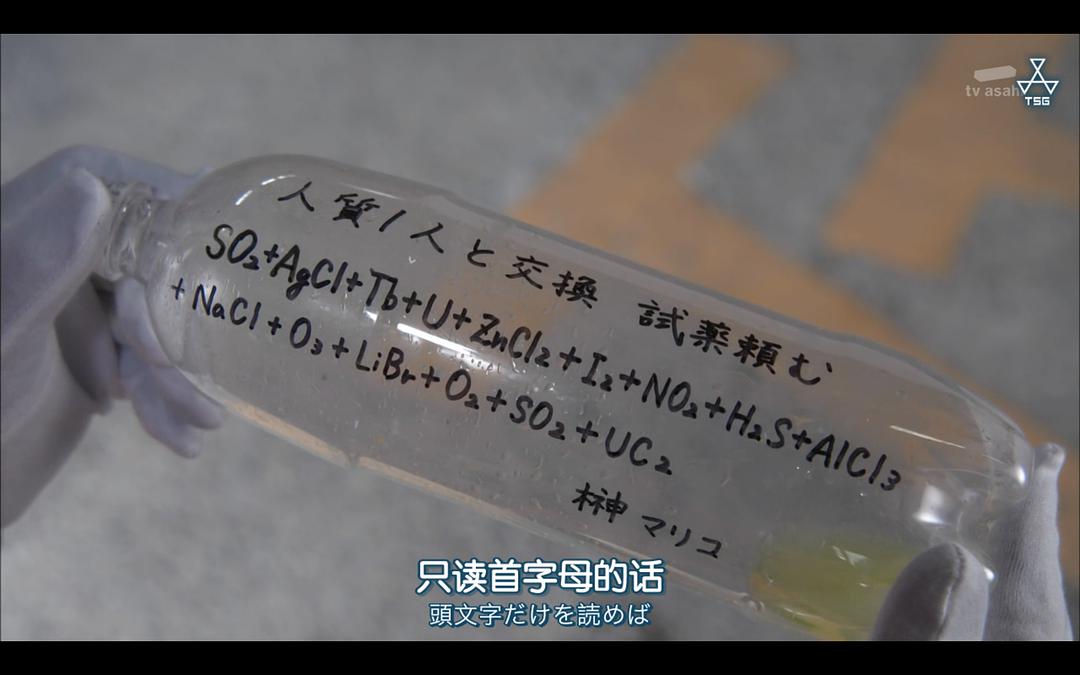 tv asahi
TSG
人質1人と交換 試薬頼む
SO₂+AgCl+Tb+U+ZnCl₂+I₂+NO₂+H₂S+AlCl₃
+NaCl+O₃+LiBr+O₂+SO₂+UC₂
榊 マリコ
只读首字母的话
頭文字だけを読めば